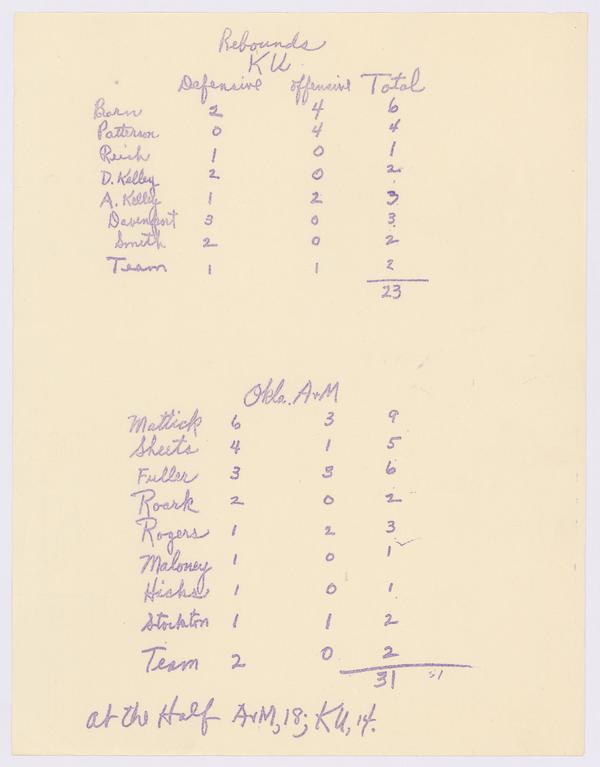 Rebounds
KU
Defensive offensive Total
Born 2 4 6
Patterson 0 4 4
Reich 1 0 1
D. Kelley 2 0 2
A. Kelley 1 2 3
Davenport 3 0 3
Smith 2 0 2
Team 1 1 2
23
Okla. A+M
Mattick 6 3 9
Sheets 4 1 5
Fuller 3 3 6
Roark 2 0 2
Rogers 1 2 3
Maloney 1 0 1
Hicks 1 0 1
Stockton 1 1 2
Team 2 0 2
31
at the Half A+M, 18; KU, 14.